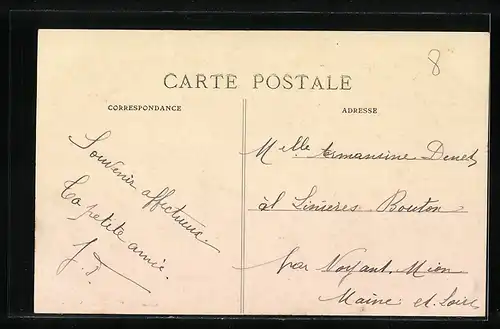 8
CARTE POSTALE
CORRESPONDANCE
ADRESSE
Souvenir affectueux.
Ta petite amie.
J. D.
Melle Armansine
à Linières Bouton
par Noyant, Mion
Maine et Loire